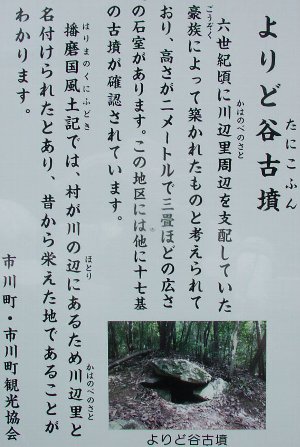 よりど谷古墳
たにこふん
六世紀頃に川辺里周辺を支配していた
かはのべのさと
豪族によって築かれたものと考えられて
ごうぞく
おり、高さが二メートルで三畳ほどの広さ
の石室があります。この地区には他に十七基
の古墳が確認されています。
播磨国風土記では、村が川の辺にあるため川辺里と
はりまのくにふどき
ほとり
かはのべのさと
名付けられたとあり、昔から栄えた地であることが
わかります。
市川町・市川町観光協会
よりど谷古墳